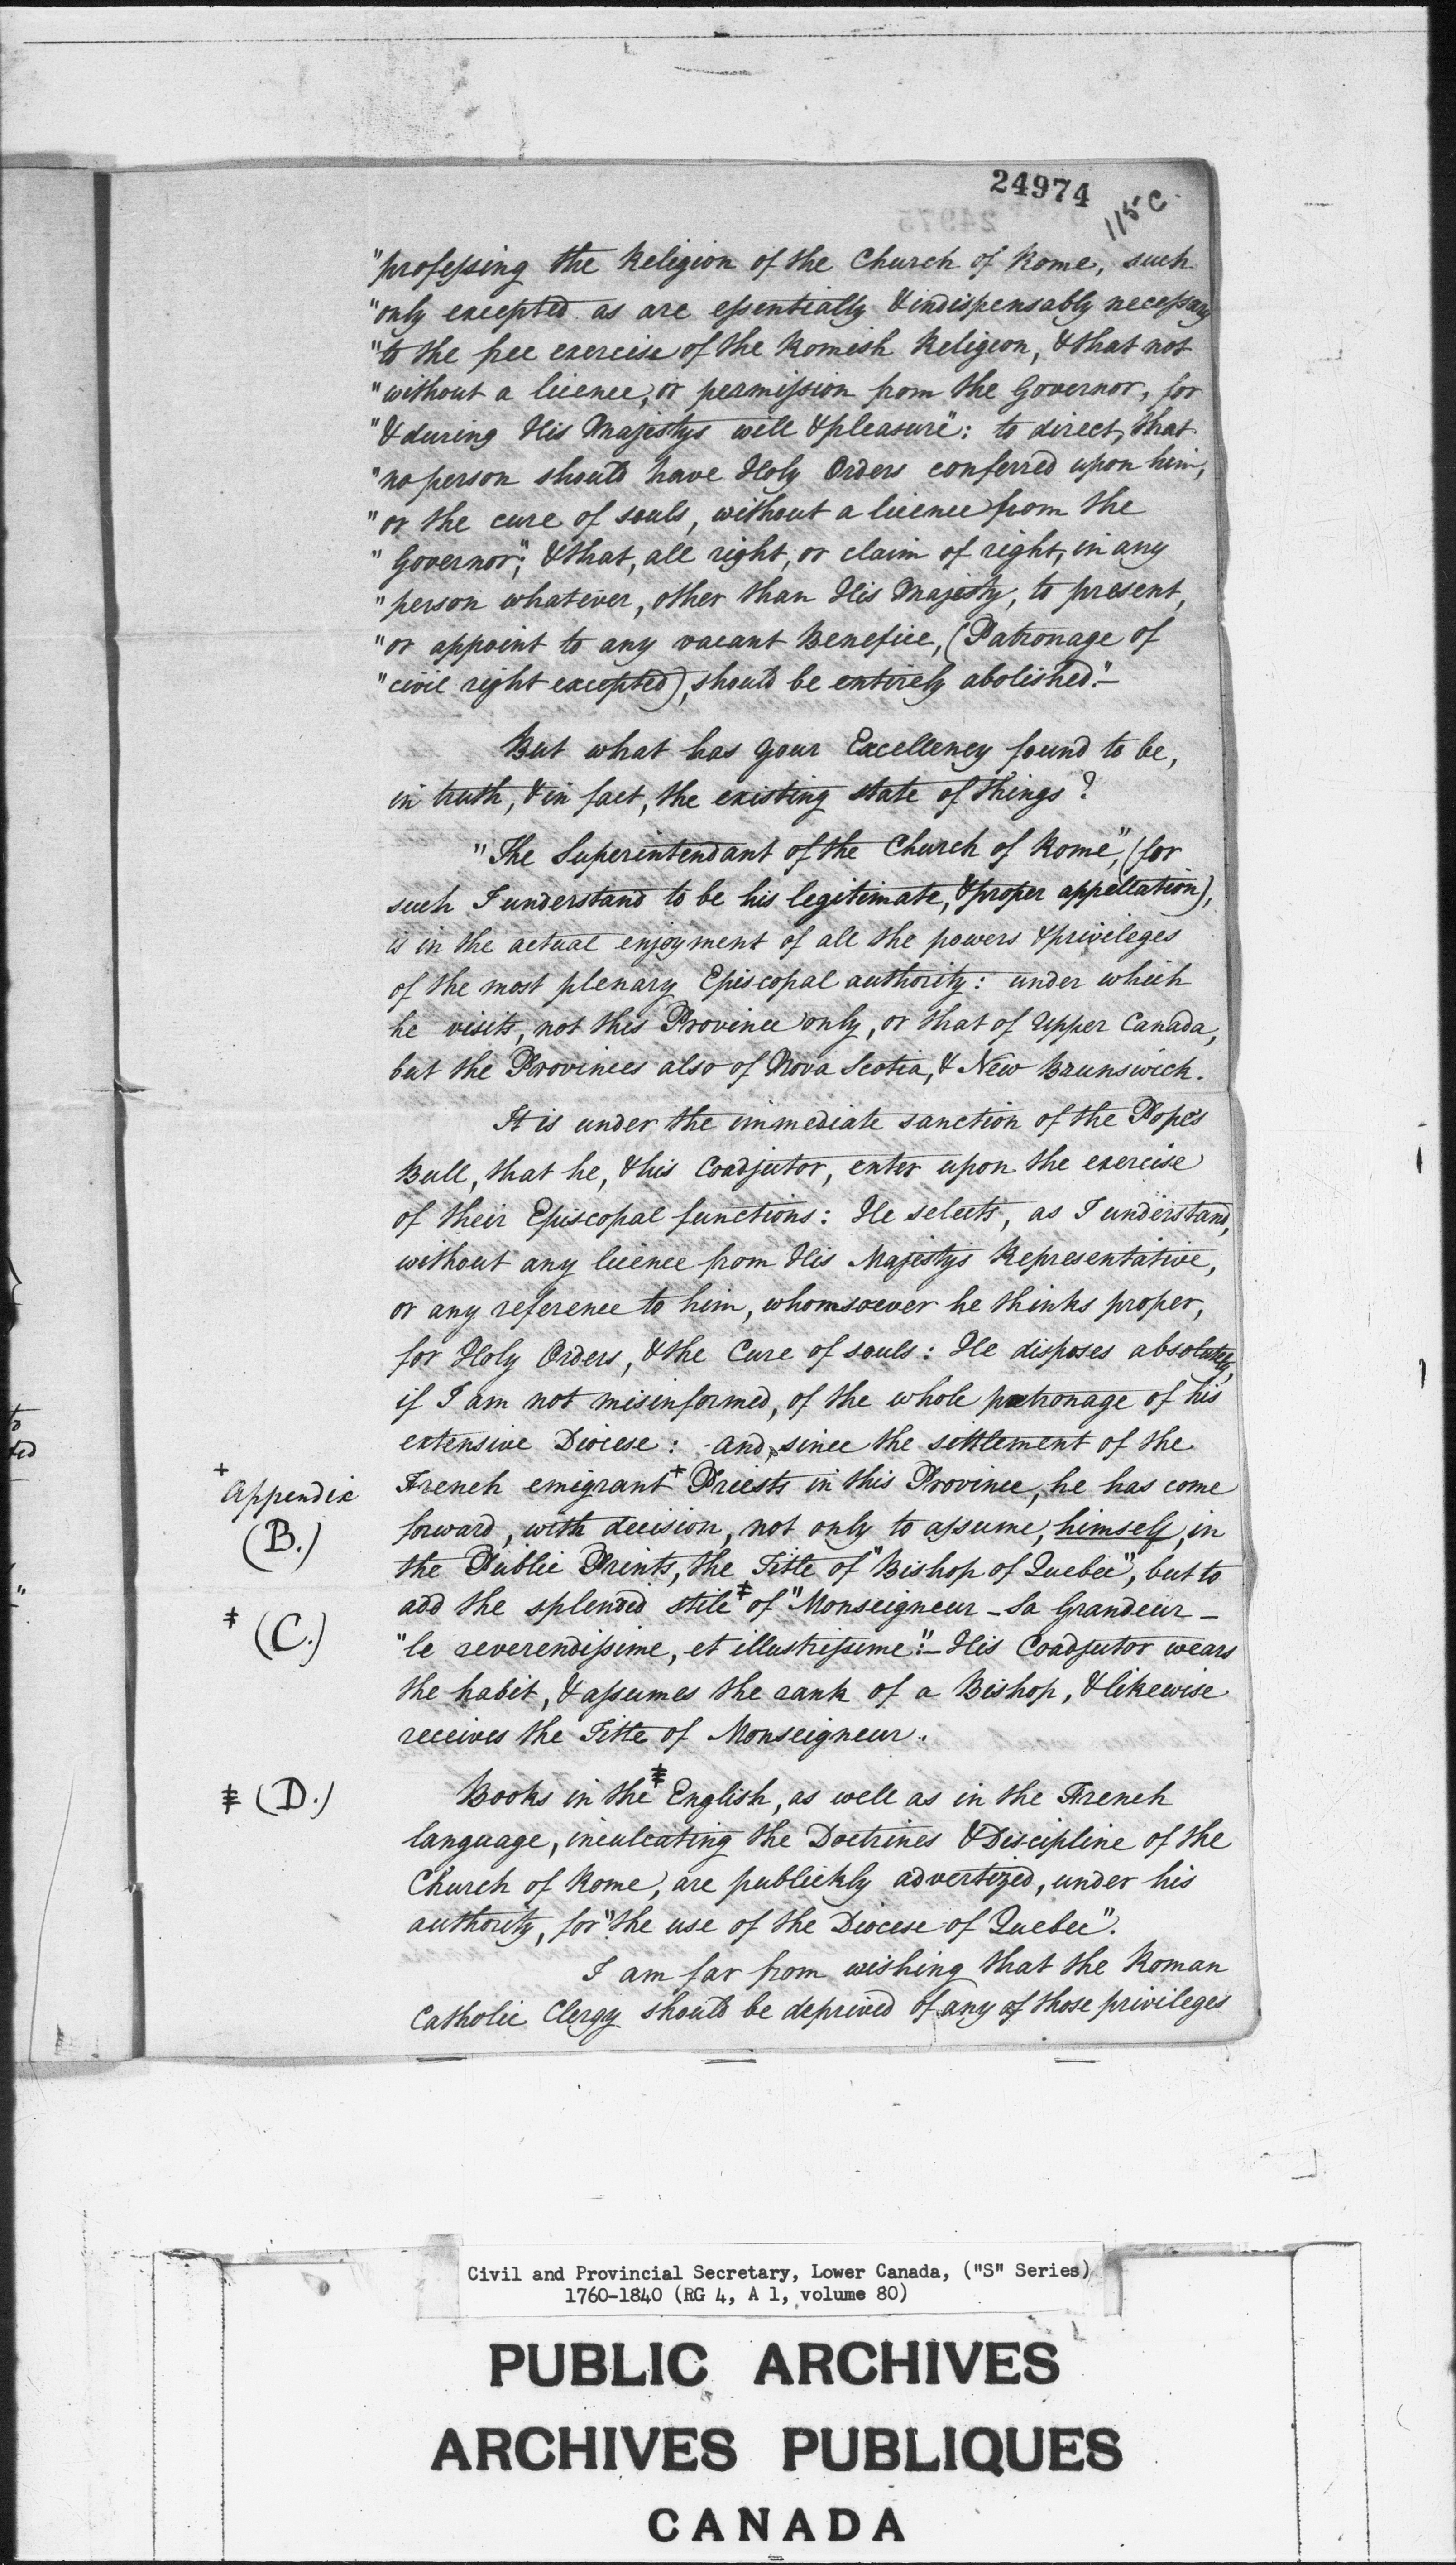 24974
115 C.
"professing the Religion of the Church of Rome, such
"only excepted as are essentially & indispensably necessary
"to the free exercise of the Romish Religion, & that not
"without a licence, or permission from the Governor, for
"& during His Majestys will & pleasure": to direct, that
"no person should have Holy Orders conferred upon him,
"or the cure of souls, without a licence from the
"Governor"; & that, all right, or claim of right, in any
"person whatever, other than His Majesty, to present,
"or appoint to any vacant Benefice, (Patronage of
"civil right excepted), should be entirely abolished."–
But what has your Excellency found to be,
in truth, & in fact, the existing state of things?
"The Superintendant of the Church of Rome", (for
such I understand to be his legitimate, & proper appellation),
is in the actual enjoyment of all the powers & privileges
of the most plenary Episcopal authority: under which
he visits, not this Province only, or that of Upper Canada,
but the Provinces also of Nova Scotia, & New Brunswick.
It is under the immediate sanction of the Pope's
Bull, that he, & his Coadjutor, enter upon the exercise
of their Episcopal functions: He selects, as I understand,
without any licence from His Majestys Representative,
or any reference to him, whomsoever he thinks proper,
for Holy Orders, & the Cure of souls: He disposes absolutely,
if I am not misinformed, of the whole patronage of his
extensive Diocese: and, since the settlement of the
+
Appendix
(B.)
French emigrant + Priests in this Province, he has come
forward, with decision, not only to assume, himself, in
the Public Prints, the Title of "Bishop of Quebec", but to
‡ (C.)
add the splendid stile ‡ of "Monseigneur – Sa Grandeur –
"le reverendissime, et illustrissime".– His Coadjutor wears
the habit, & assumes the rank of a Bishop, & likewise
receives the Title of Monseigneur.
(D.)
Books in the English, as well as in the French
language, inculcating the Doctrines & Discipline of the
Church of Rome, are publickly advertized, under his
authority, for "the use of the Diocese of Quebec".
I am far from wishing that the Roman
Catholic Clergy should be deprived of any of those privileges
Civil and Provincial Secretary, Lower Canada, ("S" Series)
1760-1840 (RG 4, A 1, volume 80)
PUBLIC ARCHIVES
ARCHIVES PUBLIQUES
CANADA